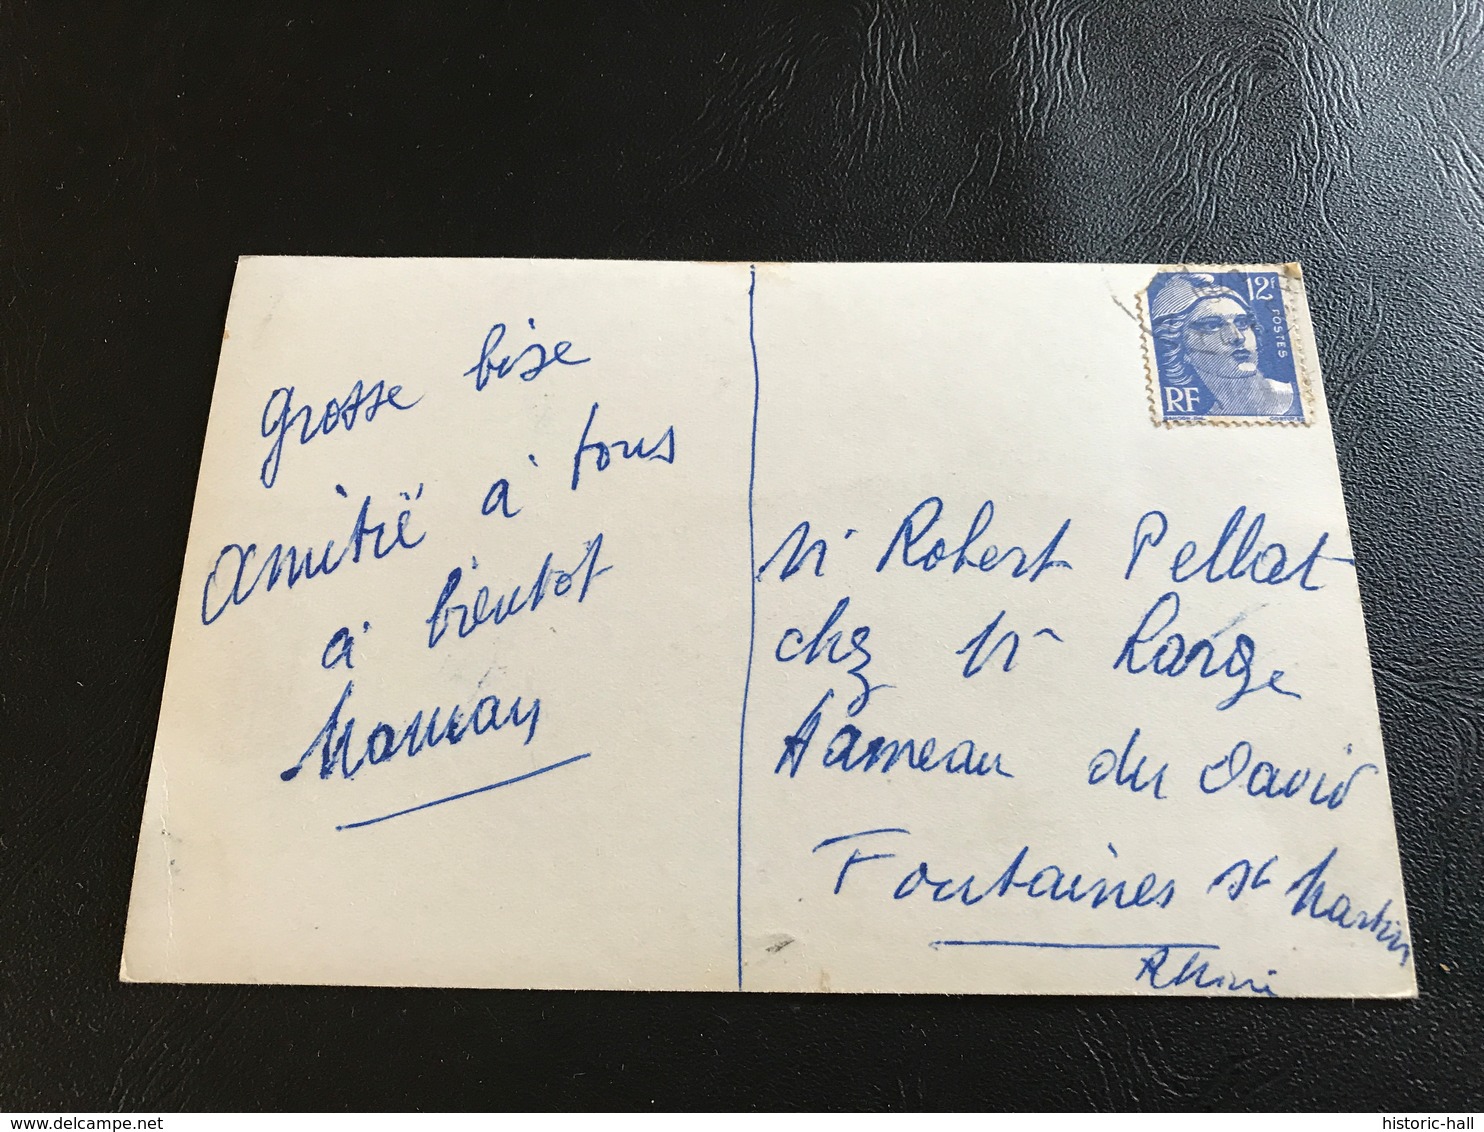 grosse bise
amitié à tous
à bientot
Maman
12F
POSTES
RF
Mr Robert Pellat
chez Mr Large
Hameau du David
Fontaines St Martin
Rhône
historic-hall